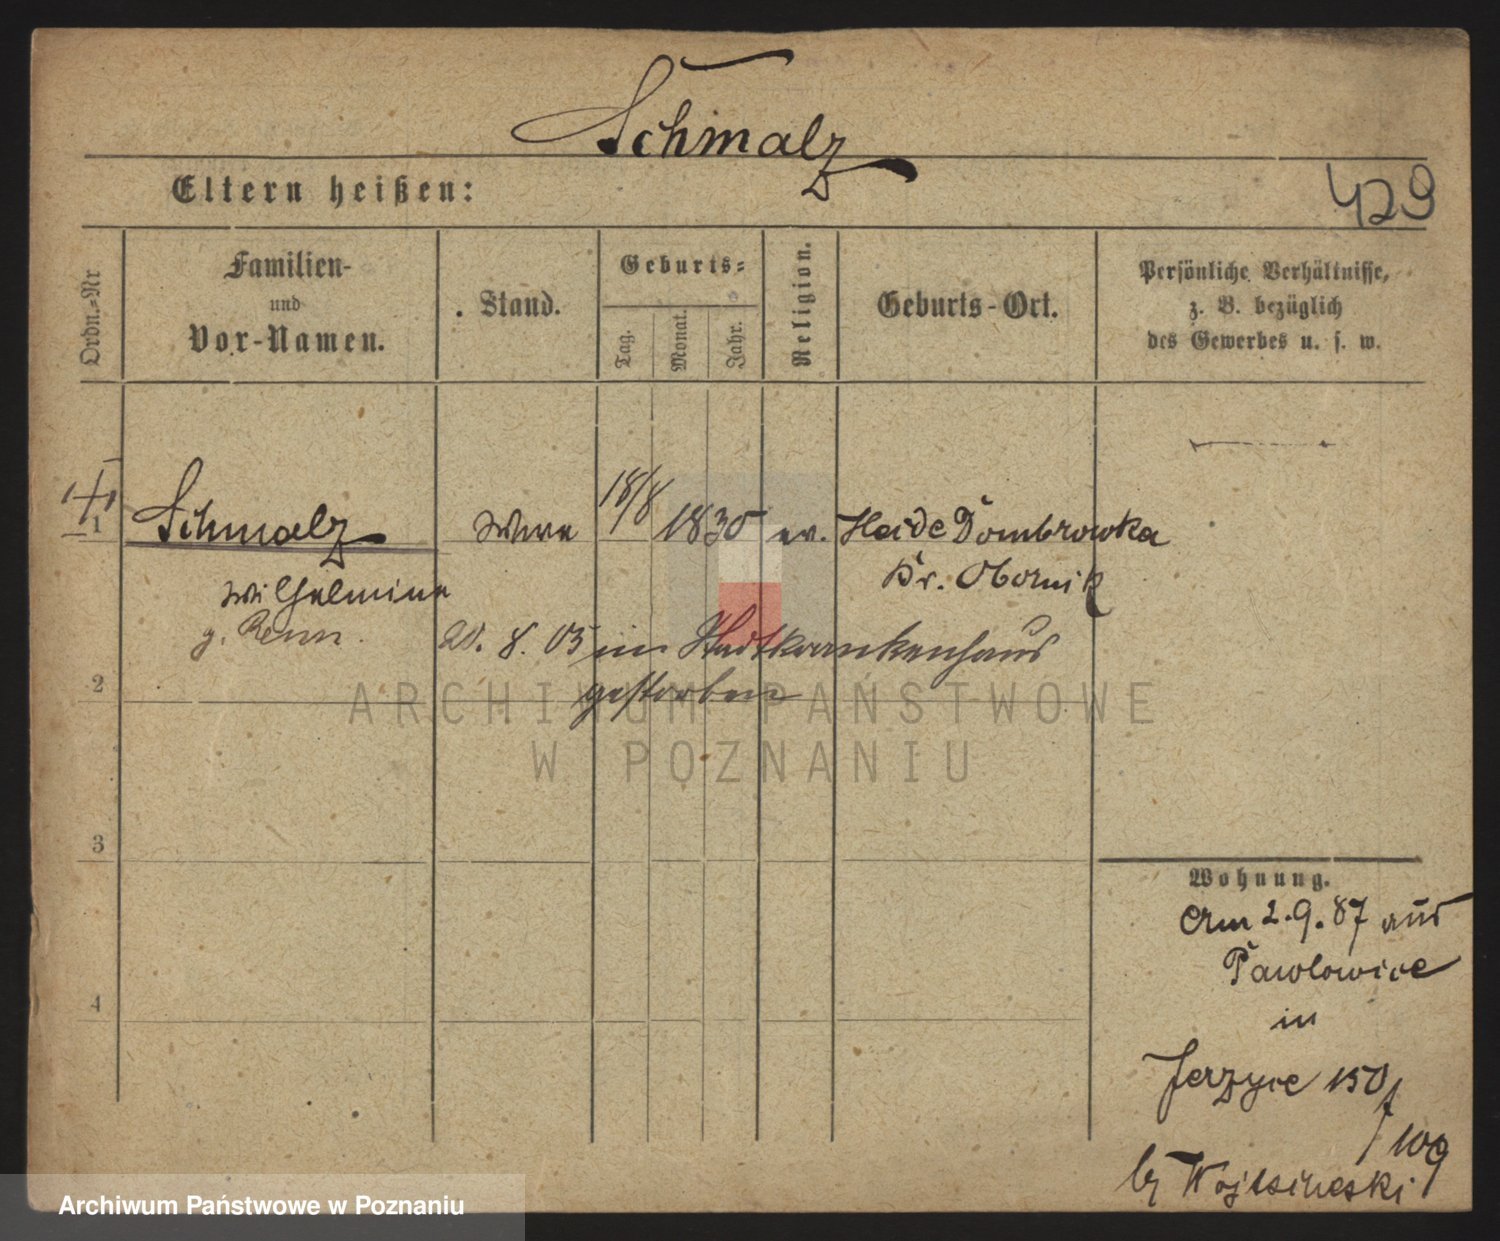 Schmalz
Eltern heißen:
429
Ordn.-Nr
Familien-
und
Vor-Namen.
Stand.
Geburts-
Tag.
Monat.
Jahr.
Religion.
Geburts-Ort.
Persönliche Verhältnisse,
z. B. bezüglich
des Gewerbes u. s. w.
1 Schmalz Wwe 18/8 1830 ev. Heide Dombrowka
Wilhelmine Kr. Obornik
g. Renn. 20. 8. 05 im Stadtkrankenhaus
gestorben
2
3
4
Wohnung.
Am 2.9.87 aus
Pawlowice
in
Jerzyce 150/
109
ARCHIWUM PAŃSTWOWE
W POZNANIU
Archiwum Państwowe w Poznaniu